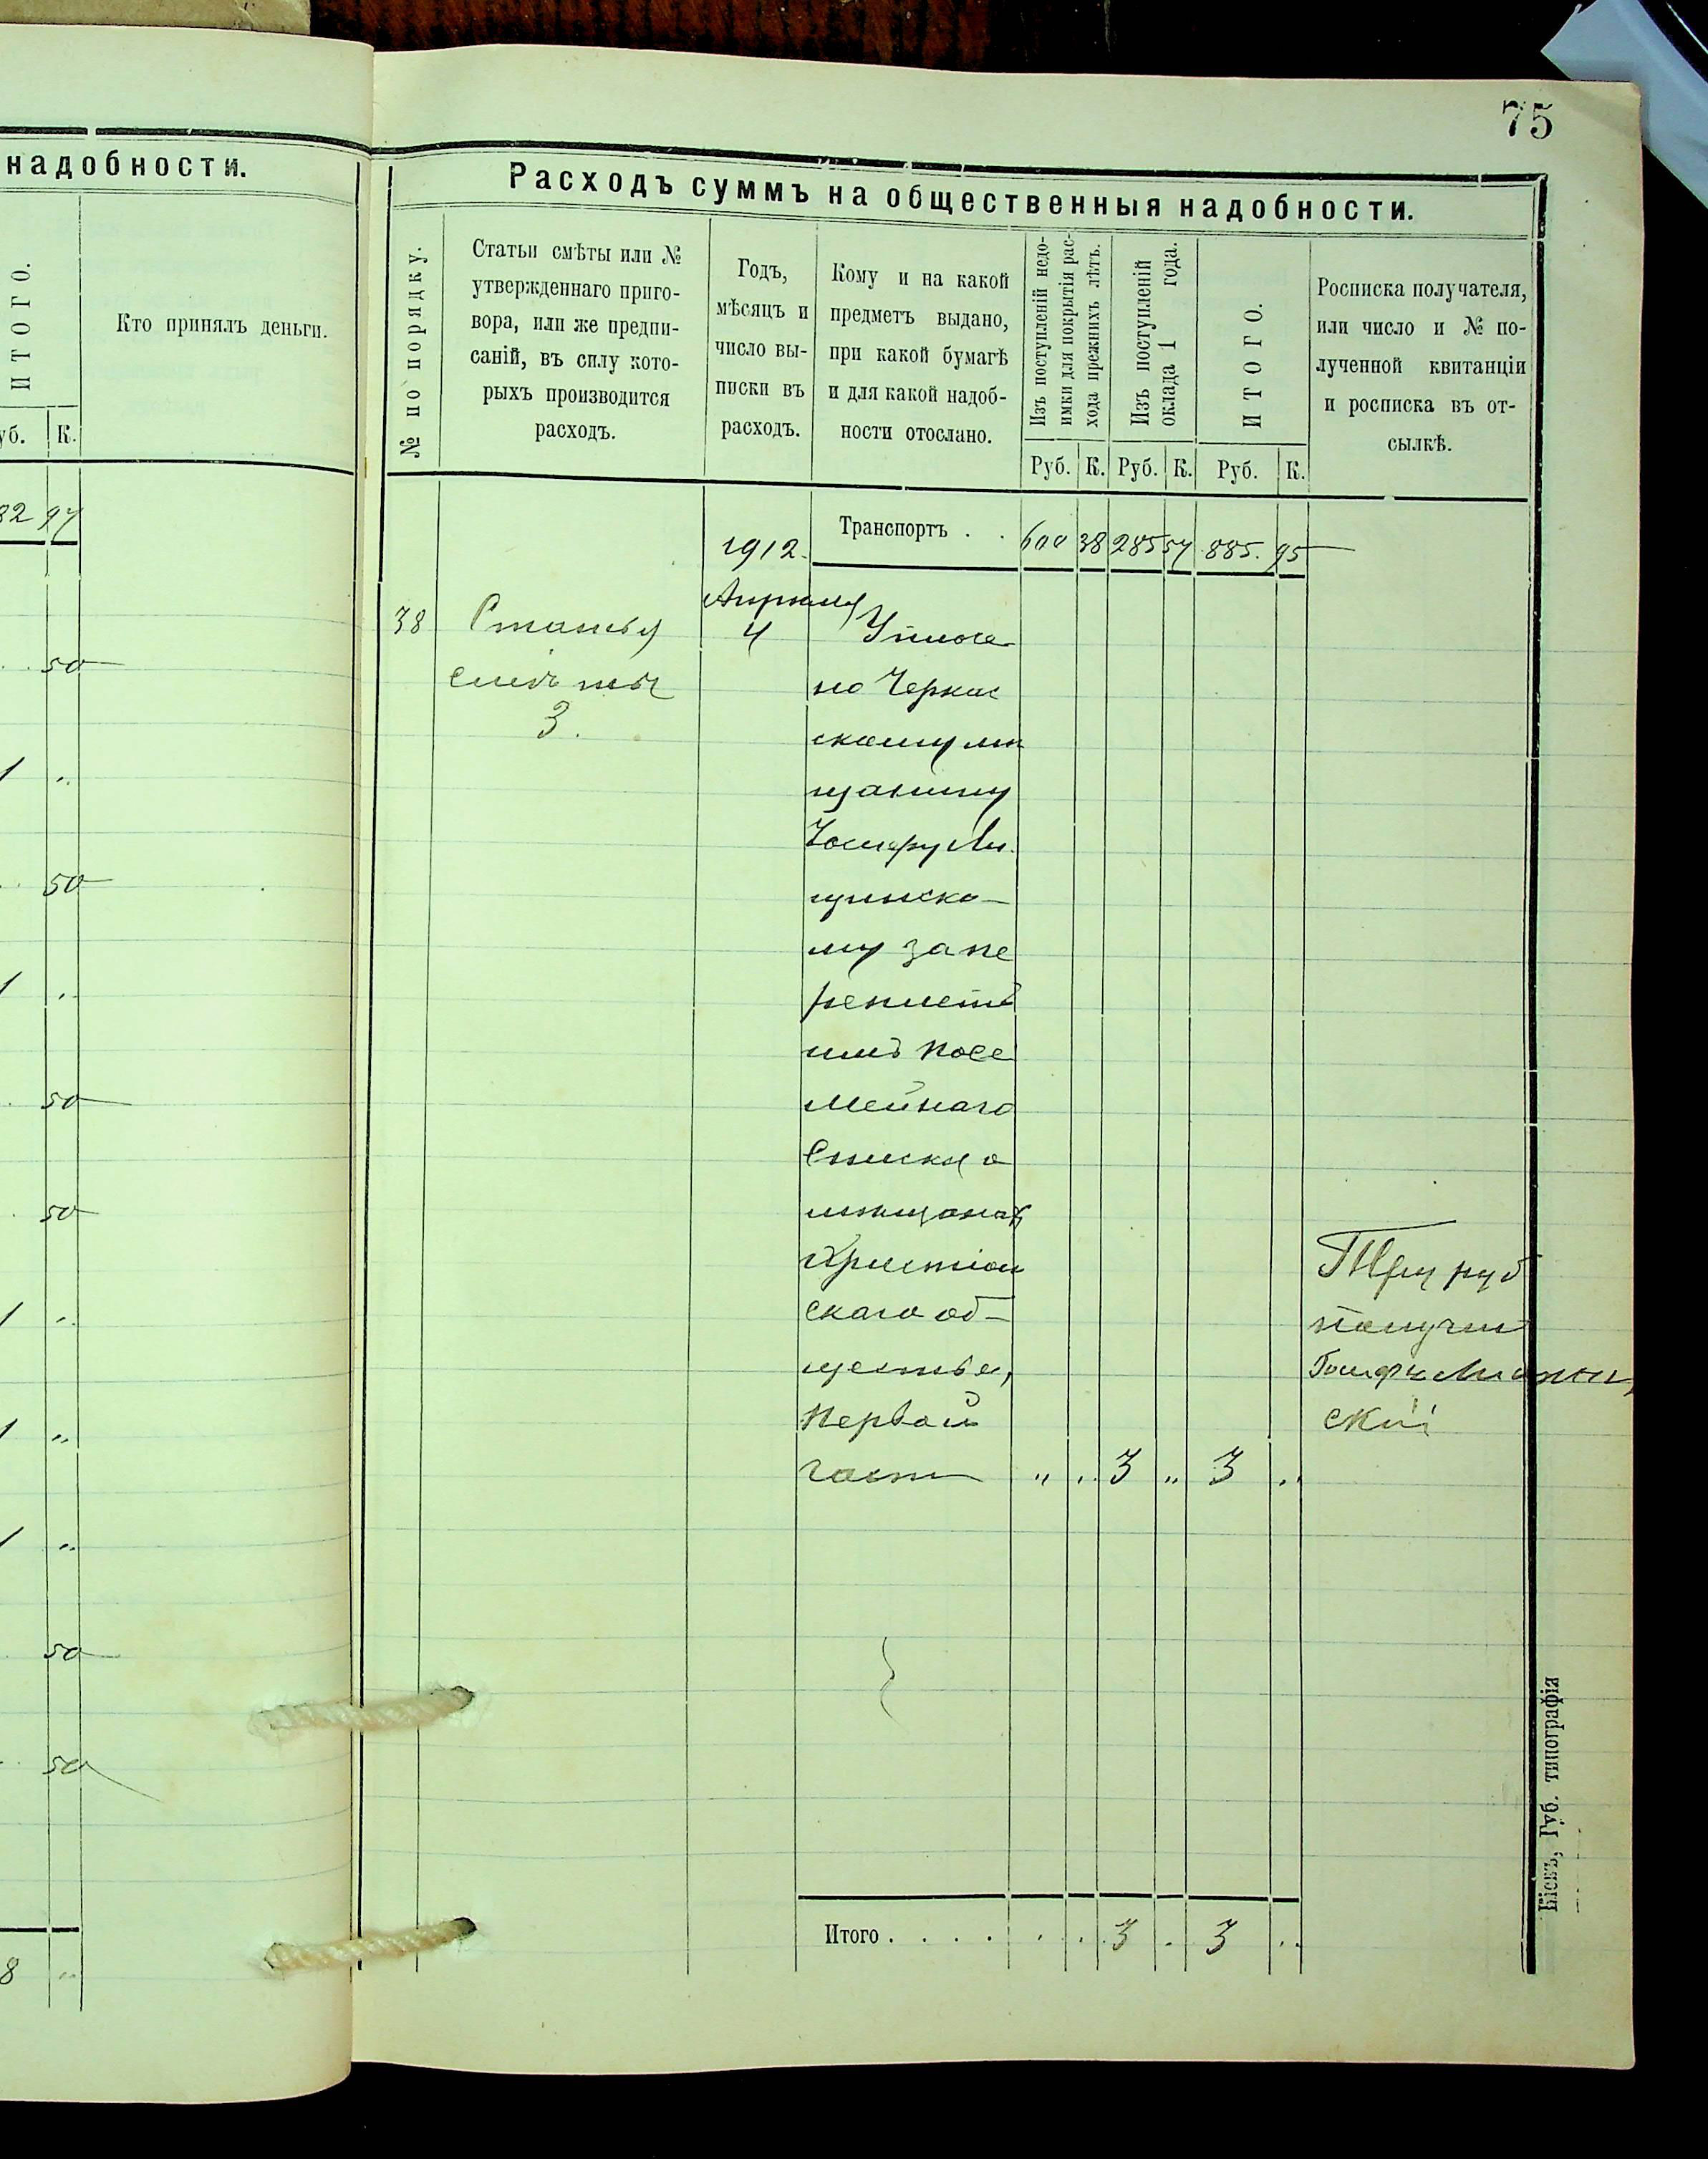 75
надобности.
ИТОГО.
Кто принялъ деньги.
уб. К.
82 97
50
1 "
50
1 "
50
50
1 "
1 "
1 "
50
50
8 "
Расходъ суммъ на общественныя надобности.
№ по порядку.
Статьи смѣты или №
утвержденнаго приго-
вора, или же предпи-
саній, въ силу кото-
рыхъ производится
расходъ.
Годъ,
мѣсяцъ и
число вы-
писки въ
расходъ.
Кому и на какой
предметъ выдано,
при какой бумагѣ
и для какой надоб-
ности отослано.
Изъ поступленій недо-
имки для покрытія рас-
хода прежнихъ лѣтъ.
Изъ поступленій
оклада 1 года.
ИТОГО.
Росписка получателя,
или число и № по-
лученной квитанціи
и росписка въ от-
сылкѣ.
Руб. К. Руб. К. Руб. К.
Транспортъ . . 600 38 285 57 885. 95
1912.
Апрѣля
38 Статья 4 Уплоче
смѣты но Черкас
3. скому мѣ
щанину
Іосифу
му за пе
реписъ
имъ посе
мейнаго
списка о
мѣщанахъ
Христіан
скаго об-
щества,
первой
части " " 3 " 3 "
Три руб
получилъ
ский
Итого . . . . . . . 3 . 3 . .
Кіевъ, Губ. типографія